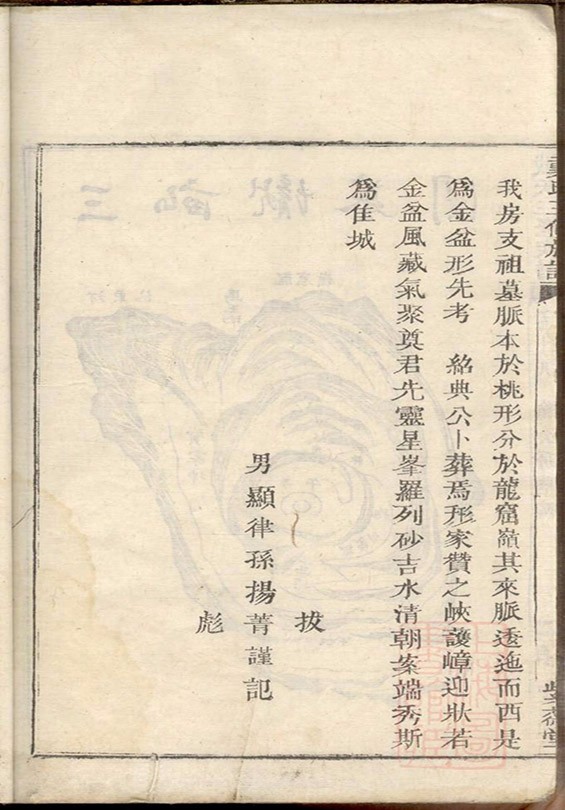 我房支祖墓脈本於桃形分於龍窟嶺其來脈透迤而西是
為金盆形先考 紹典公卜葬焉形家贊之峽護嶂迎狀若
金盆風藏氣聚奠君先靈星峯羅列砂吉水清朝案端秀斯
為佳城
拔
男顯律孫揚菁謹記
彪